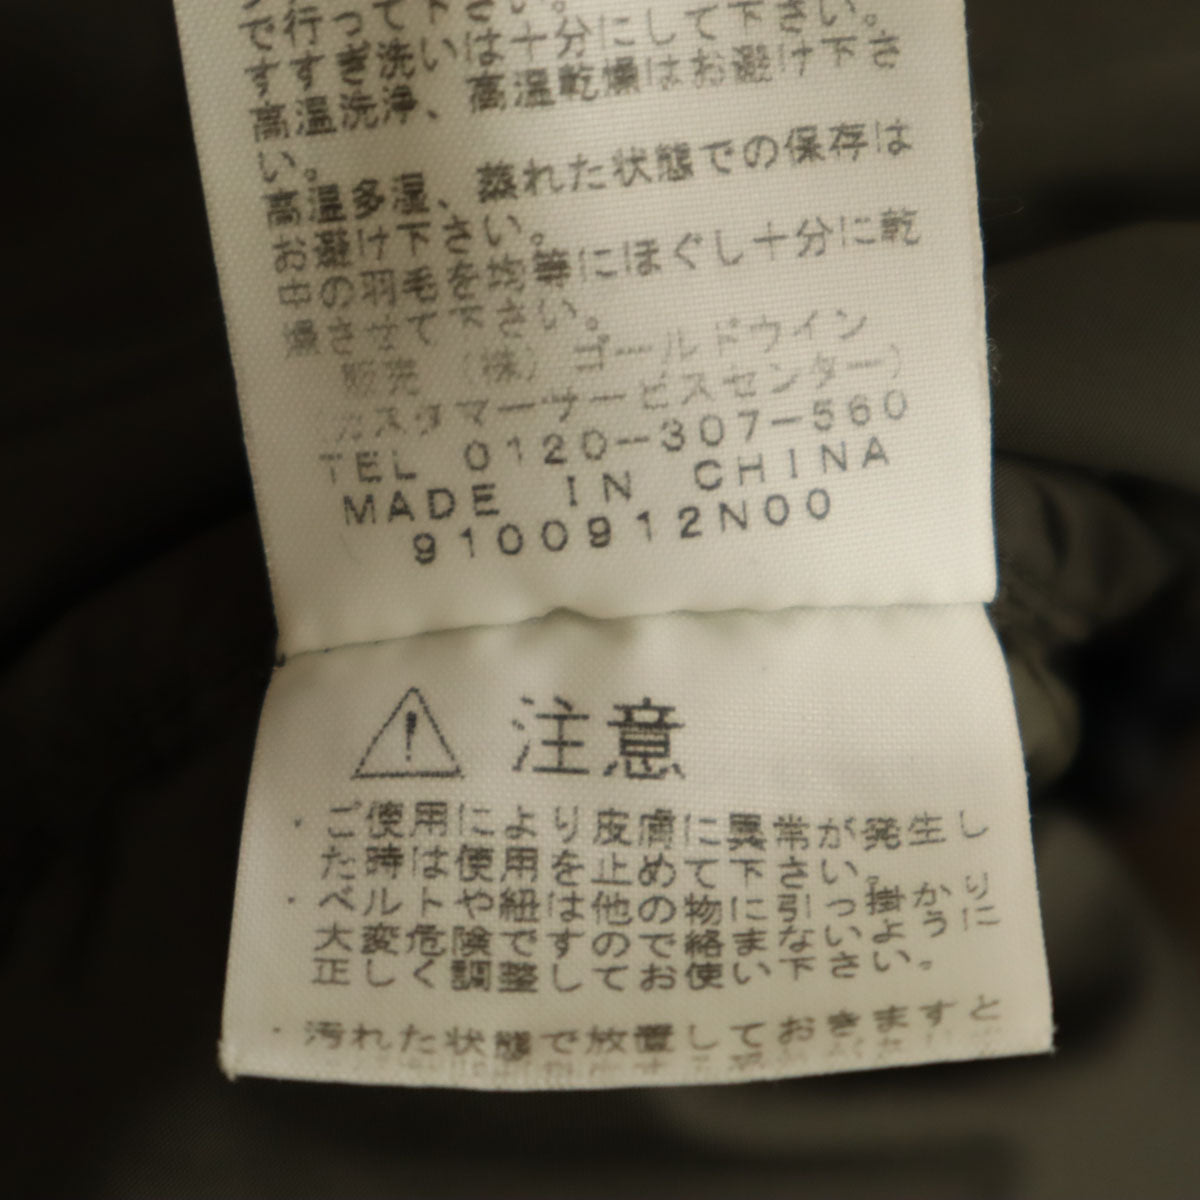 で行って下さい。
すすぎ洗いは十分にして下さい。
高温洗浄、高温乾燥はお避け下さ
い。
高温多湿、蒸れた状態での保存は
お避け下さい。
中の羽毛を均等にほぐし十分に乾
燥させて下さい。
販売 (株)ゴールドウイン
(カスタマーサービスセンター)
TEL 0120-307-560
MADE IN CHINA
9100912N00
注意
・ご使用により皮膚に異常が発生し
た時は使用を止めて下さい。
・ベルトや紐は他の物に引っ掛かり
大変危険ですので絡まないように
正しく調整してお使い下さい。
・汚れた状態で放置しておきますと